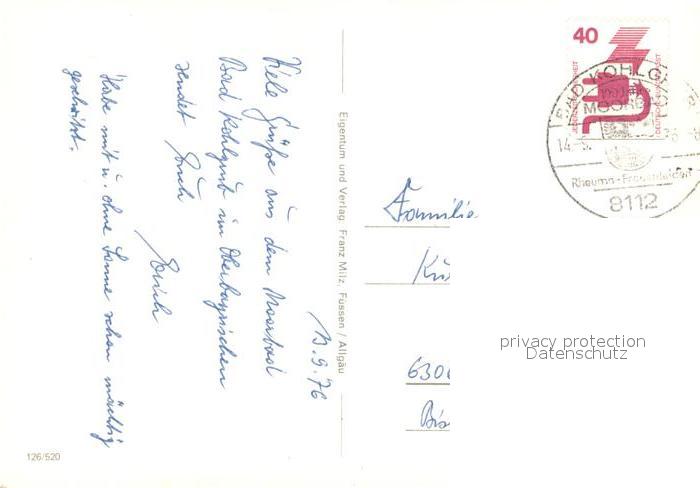 13.9.76
Viele Grüße aus dem Moorbad
Bad Kohlgrub im Oberbayrischen
sendet Euch
Erich
Habe mit u. ohne Sonne schon mächtig
geschwitzt.
Eigentum und Verlag Franz Milz, Füssen / Allgäu
126/520
40
DEUTSCHE BUNDESPOST
BAD KOHLGR
MOORB
14.9.
Rheuma-Frauenleiden
8112
Familie
Kü
630
Bis
privacy protection
Datenschutz